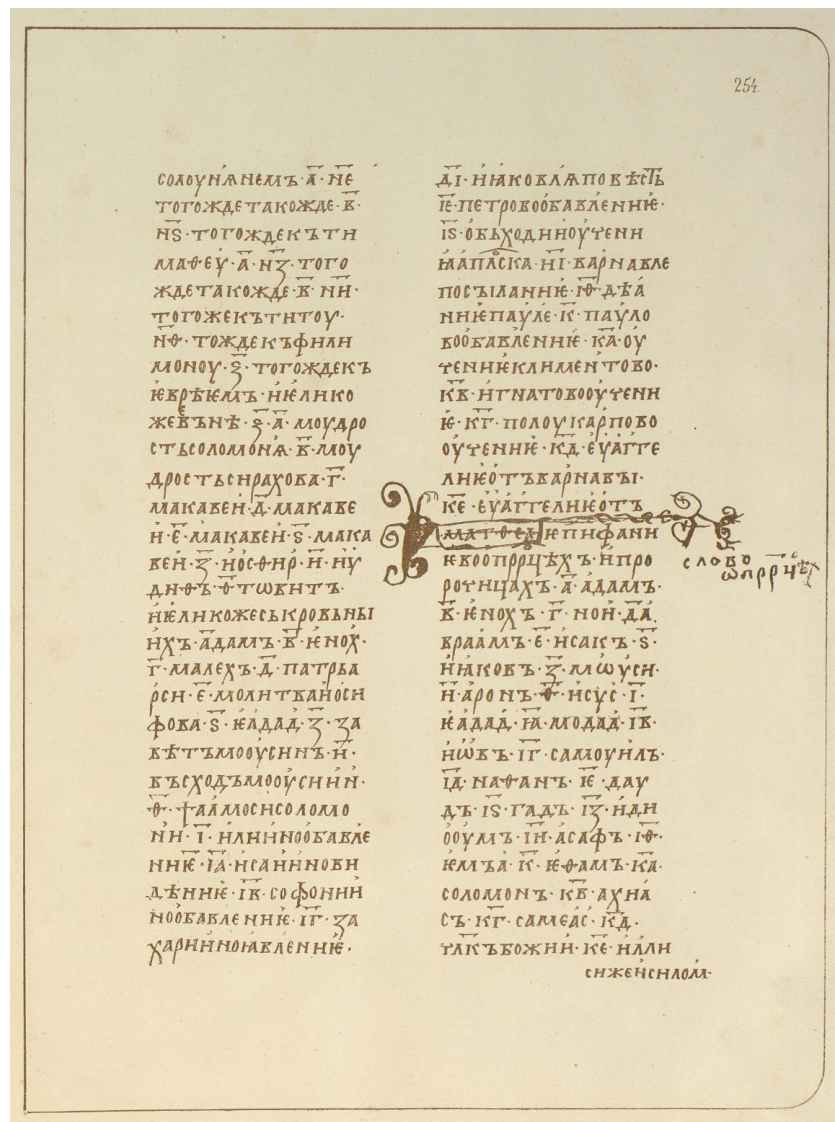 254.
солоунѧнемъ·а҃·н҃е
тогождетакожде·в҃·
н҃ѕ·тогождекъти
маѳеу·а҃·н҃з·того
ждетакожде·в҃·н҃и·
тогожекътитоу·
н҃ѳ·тождекъфили
моноу·ѯ҃·тогождекъ
ѥврѣѥмъ·иѥлико
жевънѣ·ѯ҃·а҃·моудро
стьсоломонѧ·в҃·моу
дростьсирахова·г҃·
макавеи·д҃·макаве
и·е҃·макавеи·ѕ҃·мака
веи·з҃·иосѳир·и҃·иу
диѳь·ѳ҃·тѡвитъ·
иѥликожесъкровьны
ихъ·адамъ·в҃·ѥнох·
г҃·малехъ·д҃·патрьа
рси·е҃·молитваиоси
фова·ѕ҃·ѥлдад·з҃·за
вѣтъмооусиинъ·и҃·
въсходъмооусиин·
ѳ҃·ѱалмосисоломо
ни·і҃·илиинообавле
ниѥ·і҃а·исаиинови
дѣниѥ·і҃в·софонии
нообавлениѥ·і҃г·за
хариинноꙗвлениѥ·
д҃і·иꙗковлѧповѣсть
і҃е·петровообавлениѥ·
і҃ѕ·обьходииоучени
ꙗапⷭ҇лска·и҃і·варнавле
посъіланиѥ·і҃ѳ·дѣа
ниѥпауле·к҃·пауло
вообавлениѥ·к҃а·оу
чениѥклиментово·
к҃в·игнатовооучени
ѥ·к҃г·полоукарпово
оучениѥ·к҃д·еуагге
лиѥотъварнавъі·
к҃е·еуаггелиѥотъ
матѳеа ѥпифани
ѥвоопрр҃цѣхъ·ипро
рочицахъ·а҃·адамъ·
в҃·ѥнохъ·г҃·нои·д҃а
враамъ·е҃·исакъ·ѕ҃·
иꙗковъ·з҃·мѡуси·
и҃·аронъ·ѳ҃·исус·і҃·
ѥлдад·і҃а·модад·і҃в·
иѡвъ·і҃г·самоуилъ·
і҃д·наѳанъ·і҃е·дау
дъ·і҃ѕ·гадъ·і҃з·иди
ооумъ·і҃и·асафъ·і҃ѳ·
ѥмъа·к҃·ѥѳамъ·к҃а·
соломонъ·к҃в·ахиа
съ·к҃г·самеас·к҃д·
чл҃къбожии·к҃е·илли
сижеисилом·
слово
ѡпрр҃цѣх